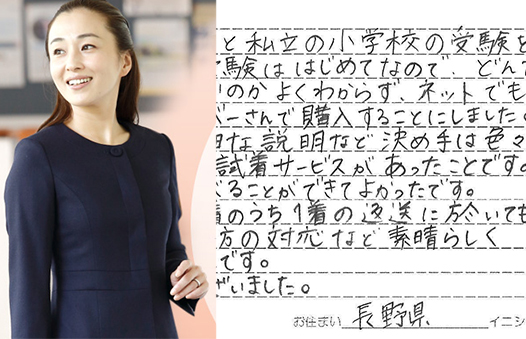 と私立の小学校の受験を
験は はじめてなので、どんて
のか よくわからず、ネットでも
バーさんで購入することにしました
な説明など 決め手は色々
試着サービスがあったことです。
ることができてよかったです。
のうち1着の返送に於いても
方の対応など 素晴らしく
です。
いました。
お住まい 長野県 イニシ